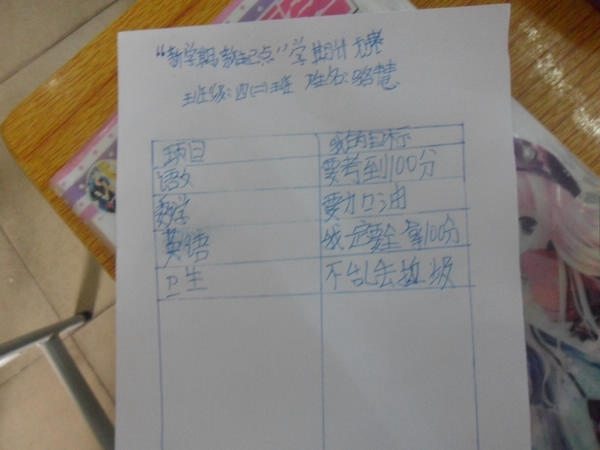 "新学期新起点"学期计划表
班级:四(二)班 姓名:路慧
项目 我的目标
语文 要考到100分
数学 要加油
英语 我一定要全拿100分
卫生 不乱丢垃圾